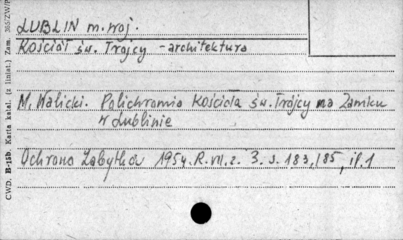 LUBLIN m. woj.
Kościół św. Trójcy - architektura
M. Walicki. Polichromia Kościoła św. Trójcy na Zamku
w Lublinie
Ochrona Zabytków 1954. R. VII, z. 3. s. 183, 185, il. 1
CWD. B-15b. Karta katal. (z liniat.) Zam.